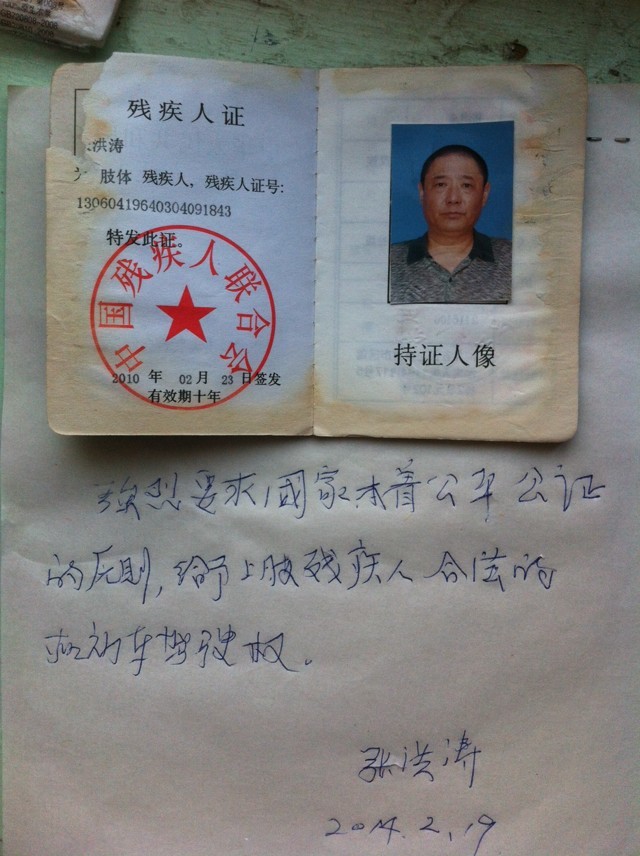 残疾人证
洪涛
为 肢体 残疾人，残疾人证号：
13060419640304091843
特发此证。
中国残疾人联合会
2010 年 02 月 23 日签发
有效期十年
持证人像
强烈要求国家本着公平公证
的原则，给予上肢残疾人合法的
机动车驾驶权。
张洪涛
2014.2.19